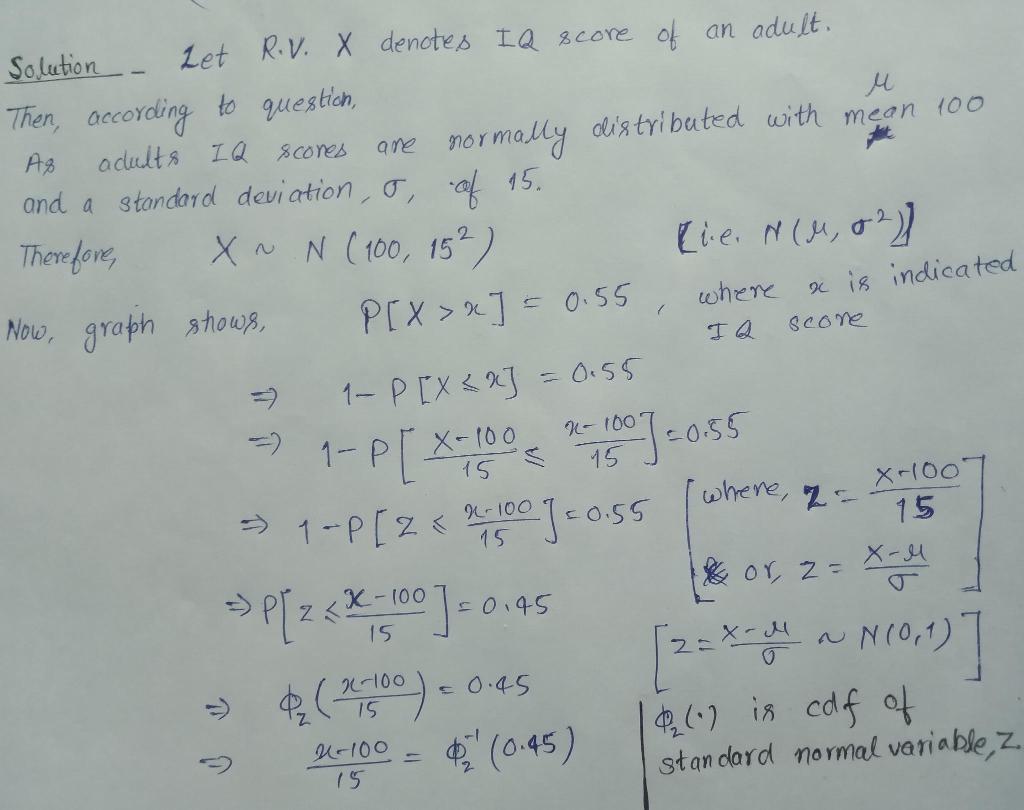 Solution - Let R.V. X denotes IQ score of an adult.
Then, according to question,
As adults IQ scores are normally distributed with mean μ 100
and a standard deviation, σ, of 15.
Therefore, X ~ N (100, 15²) [i.e. N(μ, σ²)]
Now, graph shows, P[X > x] = 0.55, where x is indicated
IQ score
⇒ 1- P[X ≤ x] = 0.55
⇒ 1-P[X-100/15 ≤ x-100/15] = 0.55
⇒ 1-P[Z ≤ x-100/15] = 0.55 [where, Z = X-100/15
⇒ P[Z ≤ x-100/15] = 0.45 or, Z = X-μ/σ]
[Z = X-μ/σ ~ N(0,1)]
⇒ ϕ_Z(x-100/15) = 0.45
ϕ_Z(.) is cdf of
⇒ x-100/15 = ϕ_Z⁻¹(0.45)
standard normal variable, Z.